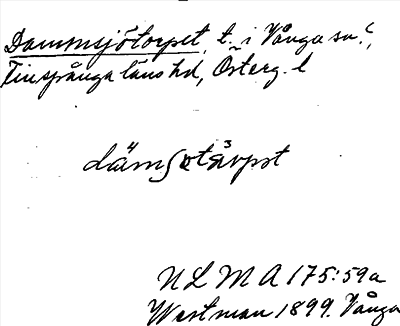 Dammsjötorpet, t. i Vånga sn,
Finspånga läns hd, Österg. l
NLMA 175:59a
Westman 1899. Vånga